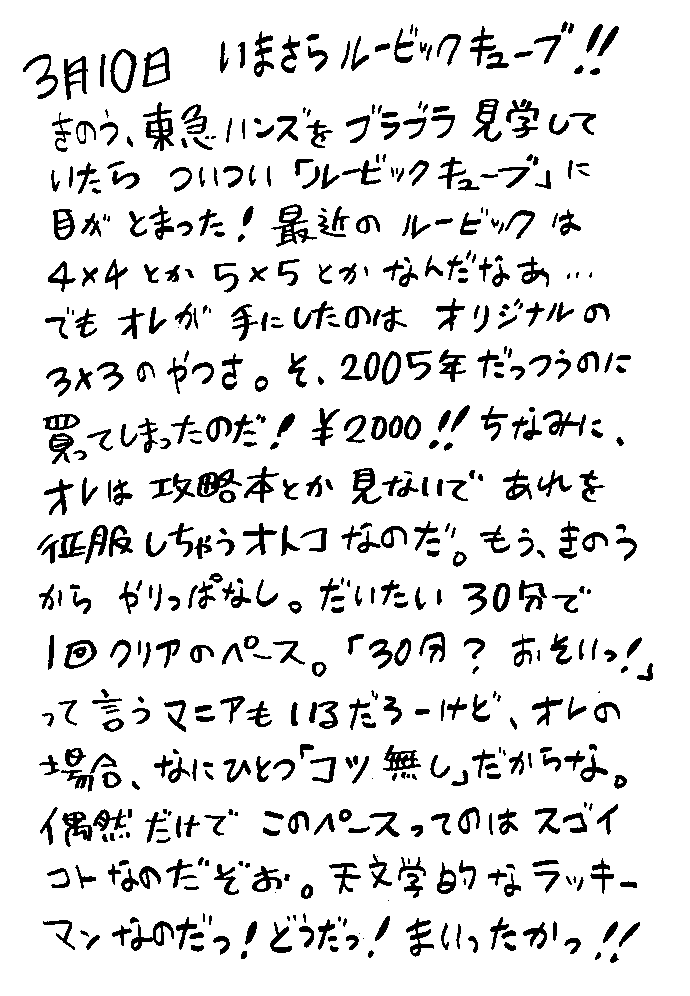 3月10日 いまさらルービックキューブ!!
きのう、東急ハンズをブラブラ見学して
いたら ついつい「ルービックキューブ」に
目がとまった! 最近のルービックは
4×4とか5×5とかなんだなぁ…
でもオレが手にしたのはオリジナルの
3×3のやつさ。そ、2005年だっつうのに
買ってしまったのだ! ¥2000!! ちなみに、
オレは攻略本とか見ないであれを
征服しちゃうオトコなのだ。もう、きのう
からやりっぱなし。だいたい30分で
1回クリアのペース。「30分? おそいっ!」
って言うマニアもいるだろーけど、オレの
場合、なにひとつ「コツ無し」だからな。
偶然だけでこのペースってのはスゴイ
コトなのだぞぉ。天文学的なラッキー
マンなのだっ! どうだっ! まいったかっ!!